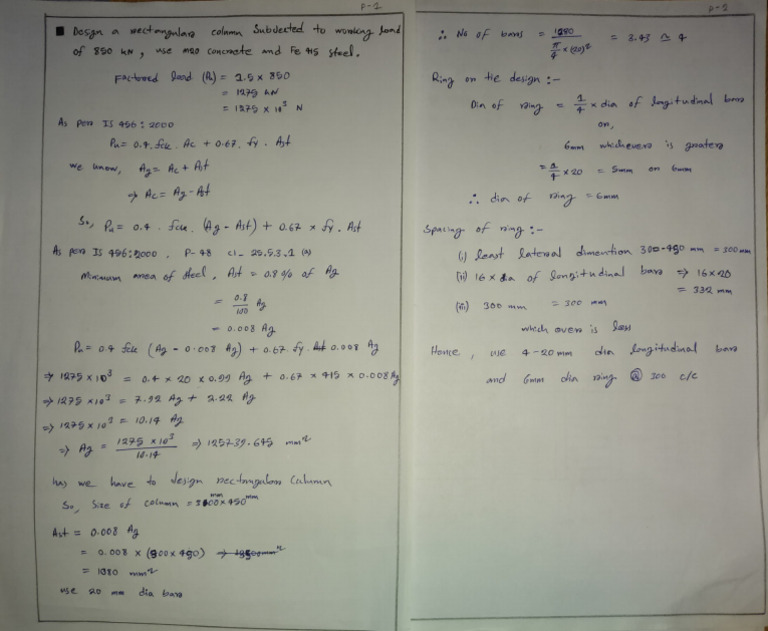 P-1
■ Design a rectangular column Subjected to working load
of 850 kN, use M20 concrete and Fe 415 steel.
Factored load (Pu) = 1.5 × 850
= 1275 kN
= 1275 × 10³ N
As per IS 456:2000
Pu = 0.4. fck. Ac + 0.67. fy. Ast
we know, Ag = Ac + Ast
⇒ Ac = Ag - Ast
So, Pu = 0.4 . fck. (Ag - Ast) + 0.67 × fy. Ast
As per IS 456:2000. P-48 cl- 26.5.3.1 (a)
Minimum area of steel, Ast = 0.8% of Ag
= 0.8/100 Ag
= 0.008 Ag
Pu = 0.4 fck (Ag - 0.008 Ag) + 0.67. fy. 0.008 Ag
⇒ 1275 × 10³ = 0.4 × 20 × 0.99 Ag + 0.67 × 415 × 0.008 Ag
⇒ 1275 × 10³ = 7.92 Ag + 2.22 Ag
⇒ 1275 × 10³ = 10.14 Ag
⇒ Ag = 1275 × 10³/10.14 ⇒ 125739.645 mm²
has we have to design rectangular Column
So, Size of column = 300mm × 450mm
Ast = 0.008 Ag
= 0.008 × (300 × 450)
= 1080 mm²
use 20 mm dia bars
P-2
∴ No of bars = 1080/π/4 × (20)² = 3.43 ≃ 4
Ring or tie design :-
Dia of ring = 1/4 × dia of longitudinal bars
or,
6mm whichever is greater
= 1/4 × 20 = 5mm or 6mm
∴ dia of ring = 6mm
Spacing of ring :-
(i) least lateral dimention 300-450 mm = 300mm
(ii) 16 × dia of longitudinal bars ⇒ 16 × 20
= 332 mm
(iii) 300 mm = 300 mm
which over is less
Hence, use 4-20mm dia longitudinal bars
and 6mm dia ring @ 300 c/c